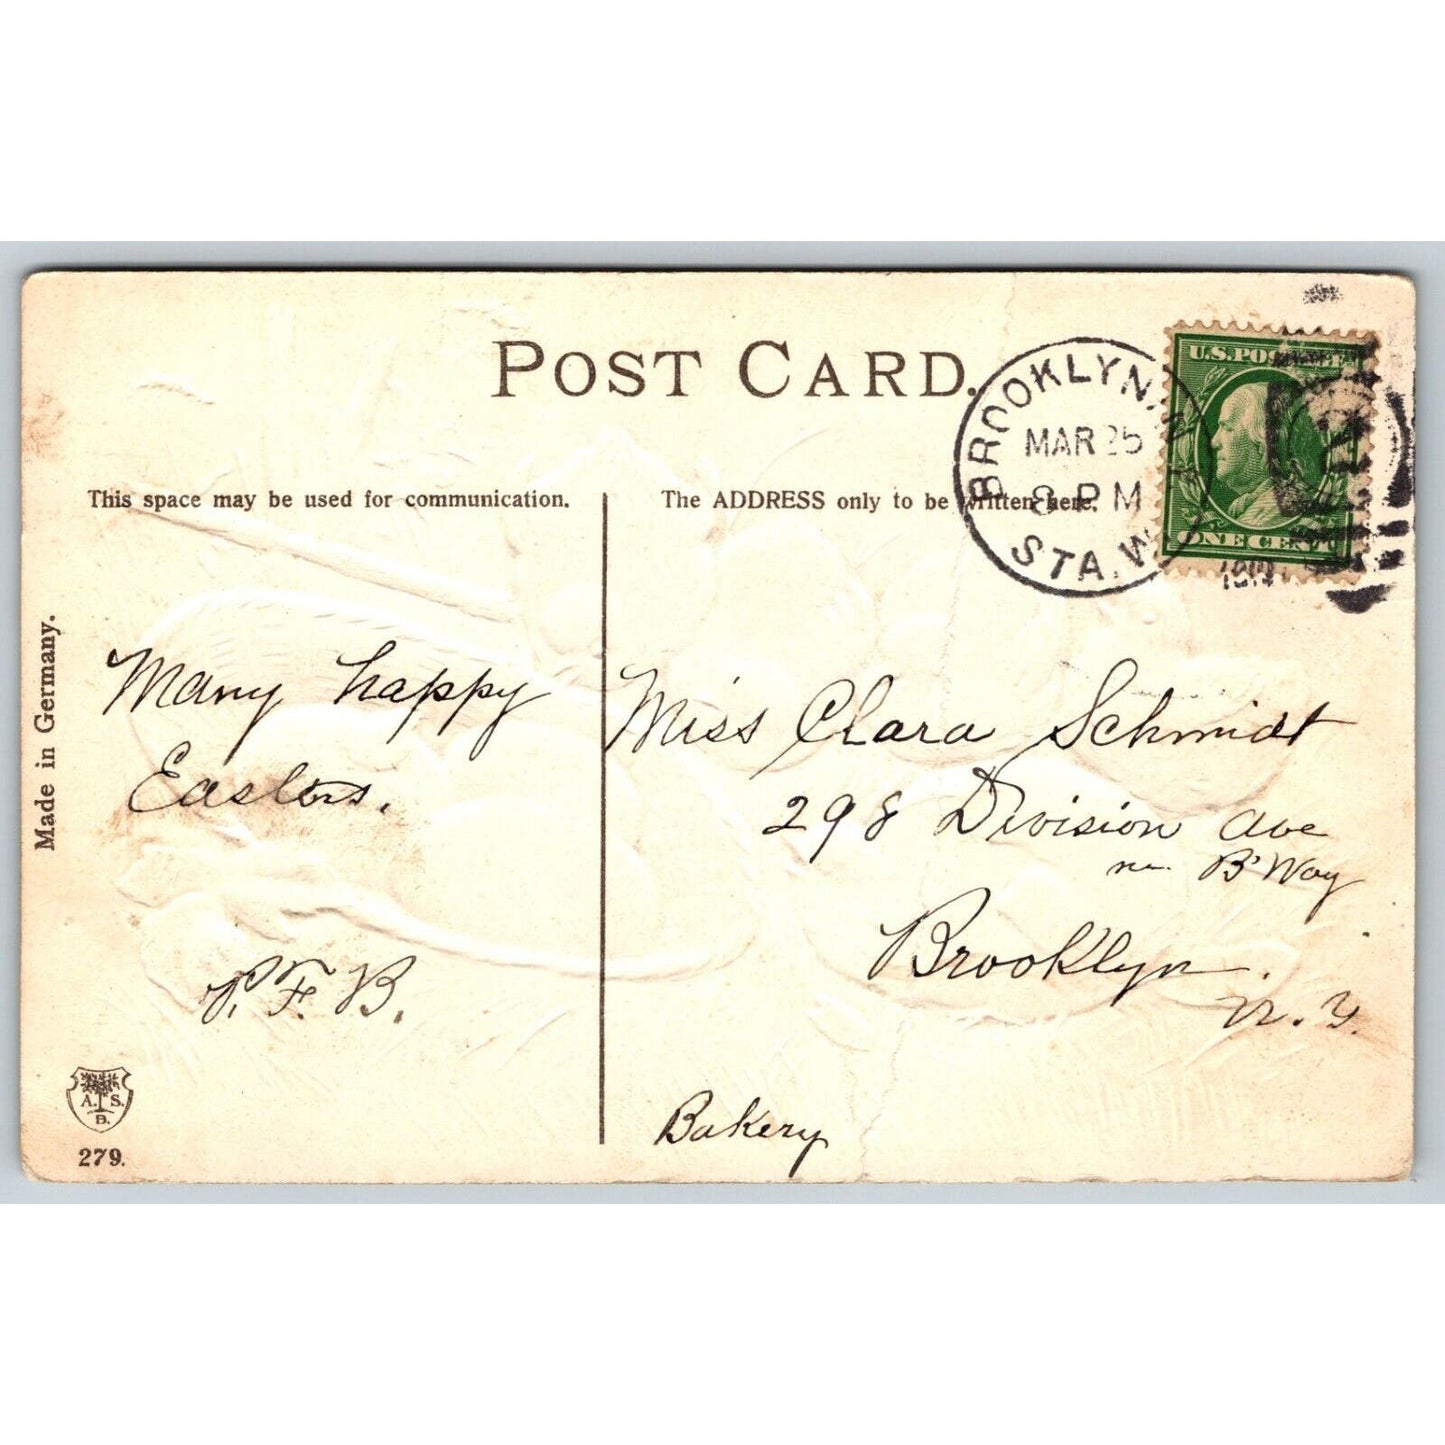 POST CARD.
This space may be used for communication.
The ADDRESS only to be written here.
BROOKLYN, N.Y.
MAR 25
8 PM
STA. W
U.S. POSTAGE
ONE CENT
Made in Germany.
Many happy
Easters.
P. F. B.
Miss Clara Schmidt
298 Division Ave
nr. B'Way
Brooklyn.
N. Y.
Bakery
A. S.
B.
279.